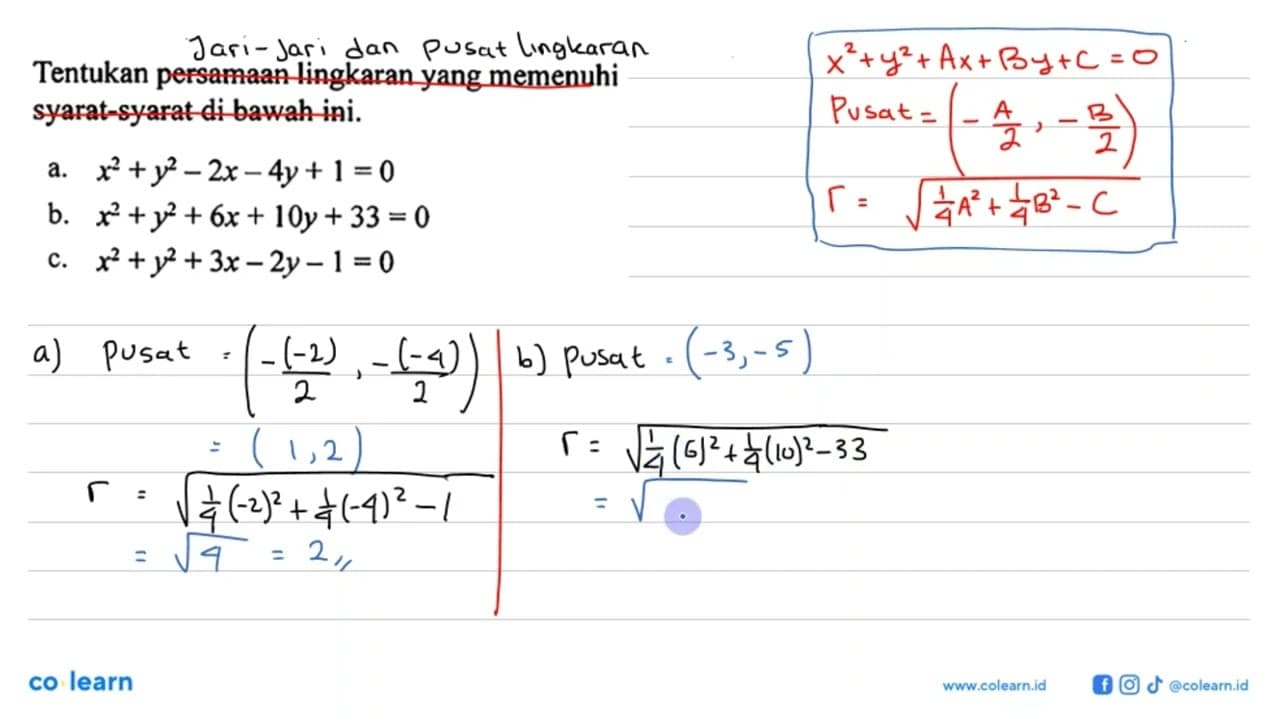 Jari-Jari dan pusat lingkaran
Tentukan persamaan lingkaran yang memenuhi
syarat-syarat di bawah ini.
a. x² + y² – 2x – 4y + 1 = 0
b. x² + y² + 6x + 10y + 33 = 0
c. x² + y² + 3x – 2y – 1 = 0
x² + y² + Ax + By + C = 0
Pusat = (-A/2, -B/2)
r = √(1/4 A² + 1/4 B² - C)
a) pusat = (-(-2)/2, -(-4)/2)
= (1,2)
r = √(1/4 (-2)² + 1/4 (-4)² - 1)
= √4 = 2//
b) pusat = (-3,-5)
r = √(1/4 (6)² + 1/4 (10)² - 33
= √
co learn
www.colearn.id
@colearn.id